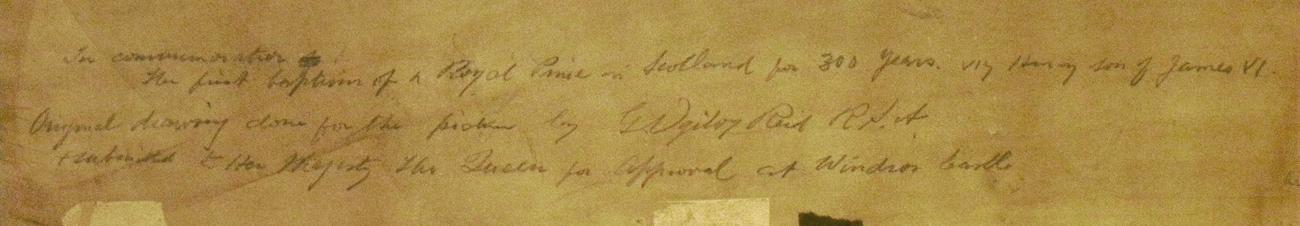 In commemoration
the first baptism of a Royal Prince in Scotland for 300 years. viz Henry son of James VI.
Original drawing done for the picture by G Ogilvy Reid R.S.A.
+ submitted to Her Majesty the Queen for Approval at Windsor Castle